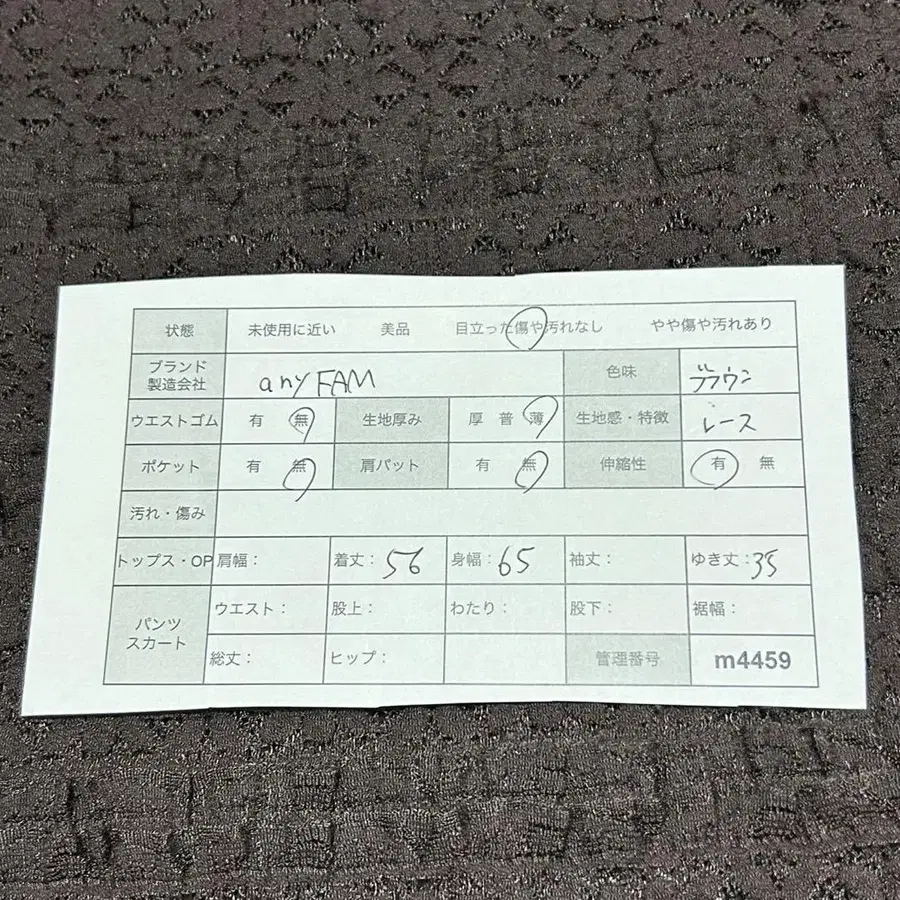 状態 未使用に近い 美品 目立った傷や汚れなし やや傷や汚れあり
ブランド 製造会社 anyFAM 色味 ブラウン
ウエストゴム 有 無 生地厚み 厚 普 薄 生地感・特徴 レース
ポケット 有 無 肩パット 有 無 伸縮性 有 無
汚れ・傷み
トップス・OP 肩幅: 着丈:56 身幅:65 袖丈: ゆき丈:35
パンツ スカート ウエスト: 股上: わたり: 股下: 裾幅:
総丈: ヒップ: 管理番号 m4459